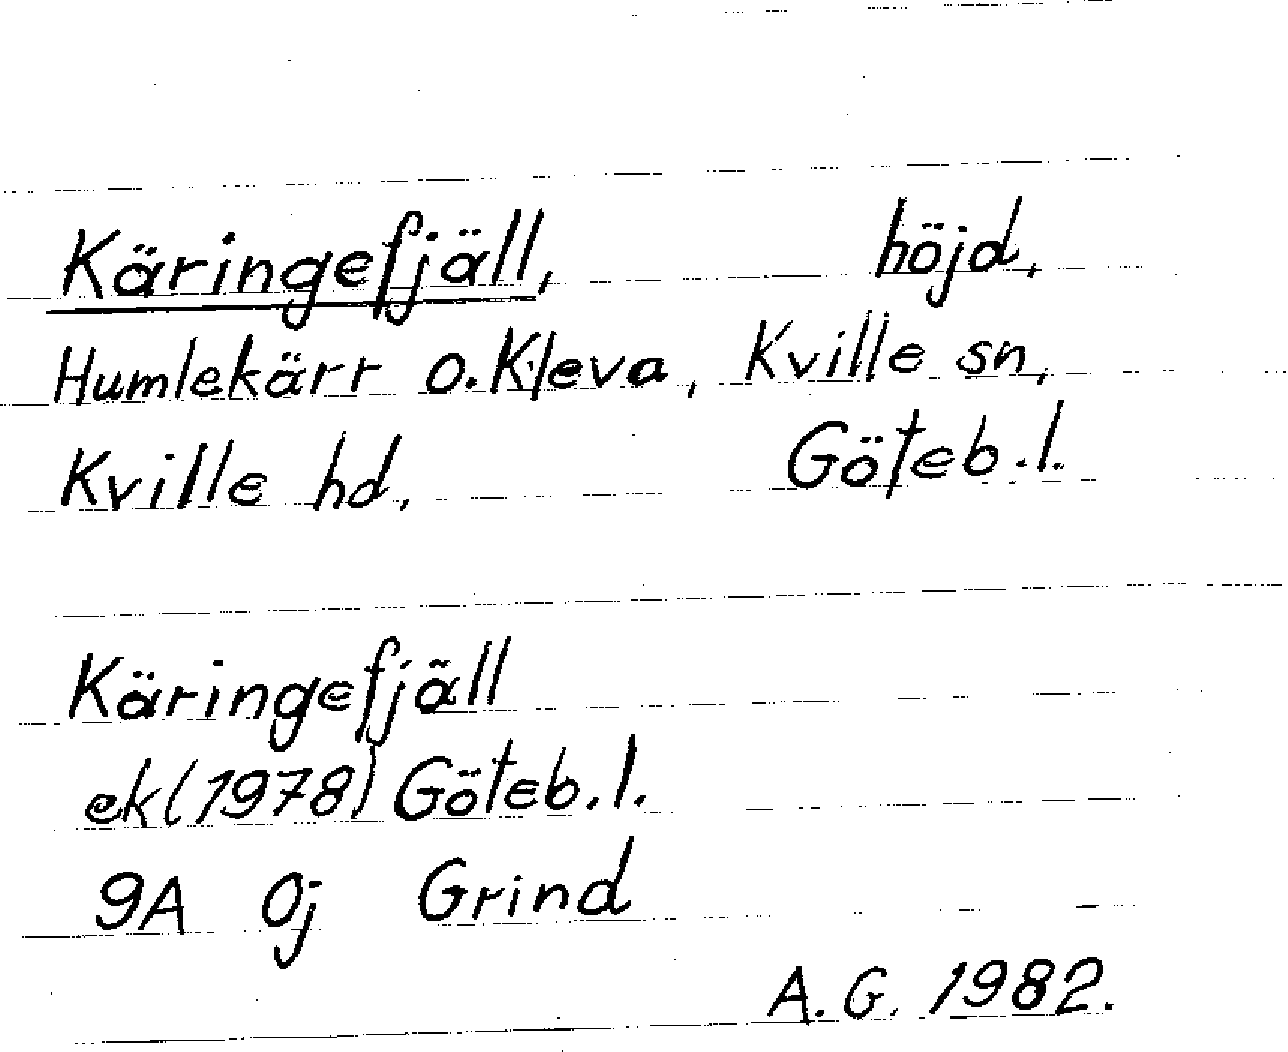 Käringefjäll, höjd,
Humlekärr o. Kleva, Kville sn,
Kville hd, Göteb. l.
Käringefjäll
ek (1978) Göteb. l.
9A 0j Grind
A. G. 1982.